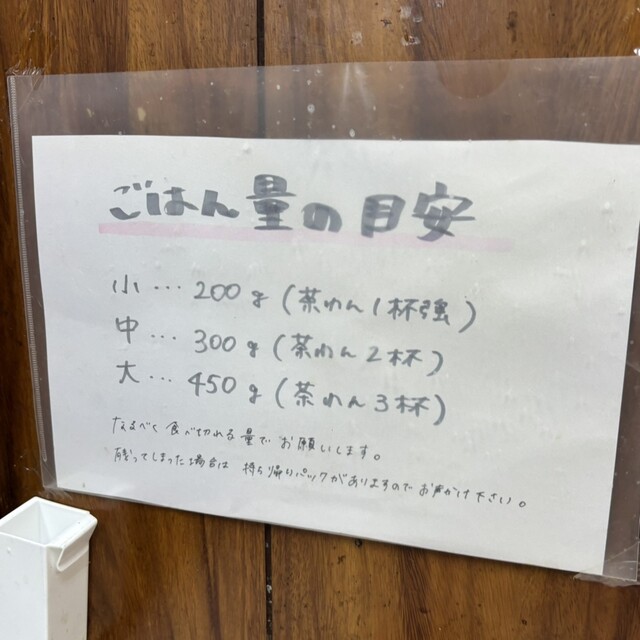 ごはん量の目安
小…200g(茶わん1杯強)
中…300g(茶わん2杯)
大…450g(茶わん3杯)
なるべく食べ切れる量でお願いします。
残ってしまった場合は 持ち帰りパックがありますのでお声がけ下さい。